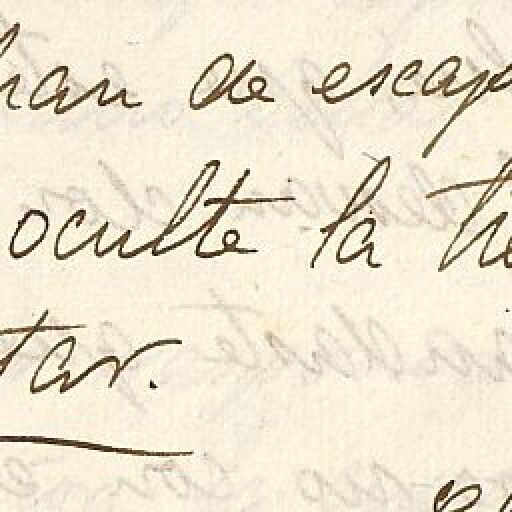 han de escap
oculte la tie
tar.